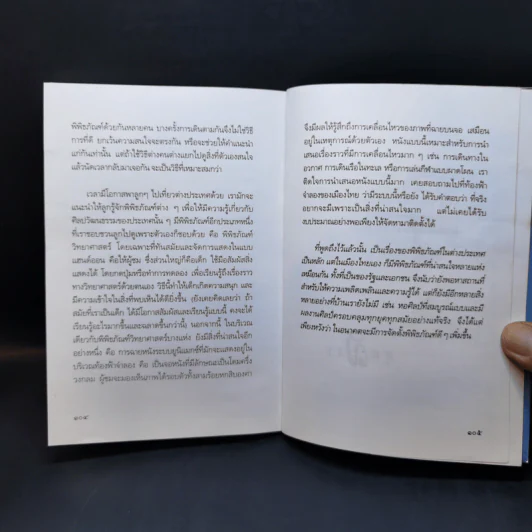 พิพิธภัณฑ์ด้วยกันหลายคน บางครั้งการเดินตามกันจึงไม่ใช่วิธี
การที่ดี ยกเว้นความสนใจจะตรงกัน หรือจะช่วยให้คำแนะนำ
แก่กันเท่านั้น แต่ถ้าใช้วิธีต่างคนต่างแยกไปดูสิ่งที่ตัวเองสนใจ
แล้วนัดเวลากลับมาเจอกัน จะเป็นวิธีที่เหมาะสมกว่า
เวลามีโอกาสพาลูกๆ ไปเที่ยวต่างประเทศด้วย เรามักจะ
แนะนำให้ลูกรู้จักพิพิธภัณฑ์ต่าง ๆ เพื่อให้มีความรู้เกี่ยวกับ
ศิลปวัฒนธรรมของประเทศนั้น ๆ มีพิพิธภัณฑ์อีกประเภทหนึ่ง
ที่เราชอบชวนลูกไปดูเพราะตัวเองก็ชอบด้วย คือ พิพิธภัณฑ์
วิทยาศาสตร์ โดยเฉพาะที่ทันสมัยและจัดการแสดงในแบบ
แฮนด์ออน คือให้ผู้ชม ซึ่งส่วนใหญ่ก็คือเด็ก ใช้มือสัมผัสสิ่ง
แสดงได้ โดยกดปุ่มหรือทำการทดลอง เพื่อเรียนรู้ถึงเรื่องราว
ทางวิทยาศาสตร์ด้วยตนเอง วิธีนี้ทำให้เด็กเกิดความสนุก และ
มีความเข้าใจในสิ่งที่พบเห็นได้ดียิ่งขึ้น ยังเคยคิดเลยว่า ถ้า
สมัยที่เราเป็นเด็ก ได้มีโอกาสสัมผัสและเรียนรู้แบบนี้ คงจะได้
เรียนรู้อะไรมากขึ้นและฉลาดขึ้นกว่านี้ นอกจากนี้ ในบริเวณ
เดียวกับพิพิธภัณฑ์วิทยาศาสตร์บางแห่ง ยังมีสิ่งที่น่าสนใจอีก
อย่างหนึ่ง คือ การฉายหนังระบบยูนิแมกซ์ที่มักจะแสดงอยู่ใน
บริเวณท้องฟ้าจำลอง คือ เป็นจอหนังที่มีลักษณะเป็นโดมครึ่ง
วงกลม ผู้ชมจะมองเห็นภาพได้รอบตัวทั้งสามร้อยหกสิบองศา
๑๐๔
จึงมีผลให้รู้สึกถึงการเคลื่อนไหวของภาพที่ฉายบนจอ เสมือน
อยู่ในเหตุการณ์ด้วยตัวเอง หนังแบบนี้เหมาะสำหรับการนำ
เสนอเรื่องราวที่มีการเคลื่อนไหวมาก ๆ เช่น การเดินทางใน
อวกาศ การเดินเรือในทะเล หรือการเล่นกีฬาแบบผาดโผน เรา
ติดใจการนำเสนอหนังแบบนี้มาก เคยสอบถามไปที่ท้องฟ้า
จำลองของเมืองไทย ว่ามีระบบนี้หรือยัง ได้รับคำตอบว่า ที่จริง
อยากจะมีเพราะเป็นสิ่งที่น่าสนใจมาก แต่ไม่เคยได้รับ
งบประมาณอย่างพอเพียงให้จัดหามาติดตั้งได้
ที่พูดถึงไว้แล้วนั้น เป็นเรื่องของพิพิธภัณฑ์ในต่างประเทศ
เป็นหลัก แต่ในเมืองไทยเอง ก็มีพิพิธภัณฑ์ที่น่าสนใจหลายแห่ง
เหมือนกัน ทั้งที่เป็นของรัฐและเอกชน จึงนับว่ายังพอหาสถานที่
สำหรับให้ความเพลิดเพลินและความรู้ได้ แต่ก็ยังมีอีกหลายสิ่ง
หลายอย่างที่บ้านเรายังไม่มี เช่น หอศิลป์ที่สมบูรณ์แบบและมี
ผลงานศิลปะครอบคลุมทุกยุคทุกสมัยอย่างแท้จริง จึงได้แต่
เพียงหวังว่า ในอนาคตจะมีการจัดตั้งพิพิธภัณฑ์ดี ๆ เพิ่มขึ้น
๑๐๕